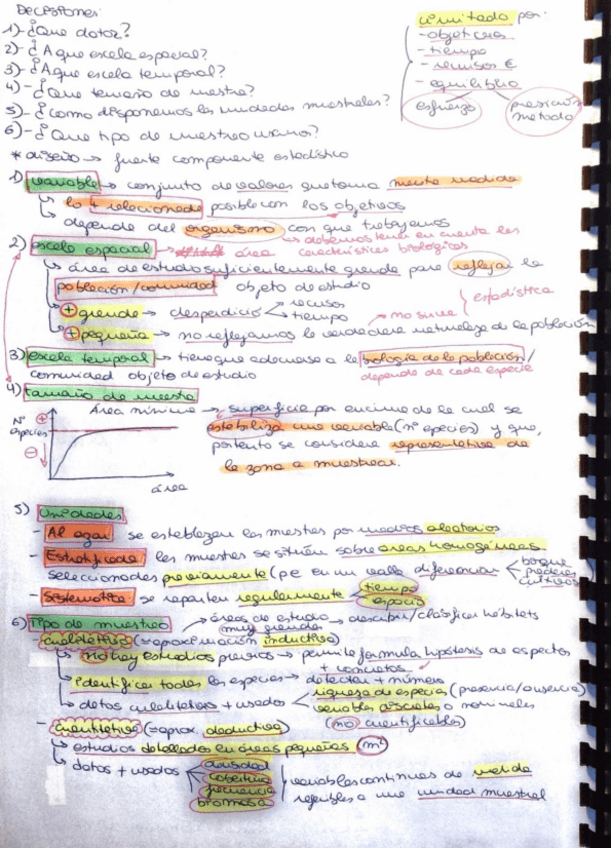 DECISIONES:
1)-¿Que datos?
2)-¿A que escala espacial?
3)-¿A que escala temporal?
4)-¿Que tamaño de muestra?
5)-¿como disponemos las unidades muestrales?
6)-¿Que tipo de muestreo usamos?
limitado por:
-objetivos
-tiempo
-recursos €
-equilibrio
esfuerzo
precisión método
* diseño → fuerte componente estadístico
1) variable → conjunto de valores que toma
lo + relacionada posible con los objetivos
depende del organismo con que trabajemos
→ debemos tener en cuenta las
características biológicas
2) escala espacial → área
área de estudio suficientemente grande para reflejar la
población/comunidad objeto de estudio
+ grande → desperdicio recursos
tiempo
+ pequeña → no reflejamos la verdadera naturaleza de la población
→ no sirve
estadística
3) escala temporal → tiene que adecuarse a la biología de la población/
comunidad objeto de estudio
depende de cada especie
4) tamaño de muestra
Área mínima → superficie por encima de la cual se
estabiliza una variable (nº especies) y que,
por tanto se considera representativa de
la zona a muestrear.
Nº especies
+
-
área
5) Unidades
- Al azar se establezen las muestras por medios aleatorios
- Estratificada las muestras se sitúan sobre áreas homogéneas
seleccionadas previamente (pe en un valle diferenciar bosque
praderas
cultivos)
- Sistemática se reparten regularmente tiempo
espacio
6) Tipo de muestreo
→ áreas de estudio muy grandes → describir/clasificar hábitats
- cualitativo (=aproximación inductiva)
No hay estudios previos → permite formula hipótesis de aspectos
+ concretos
Identificar todas las especies → detectar + número
datos cualitativos + usados riqueza de especies (presencia/ausencia)
variables discretas o nominales
(no cuantificables)
- cuantitativo (=aprox. deductiva)
estudios detallados en áreas pequeñas (m²)
datos + usados densidad
cobertura
frecuencia
biomasa
variables continuas de medida
referibles a una unidad muestral